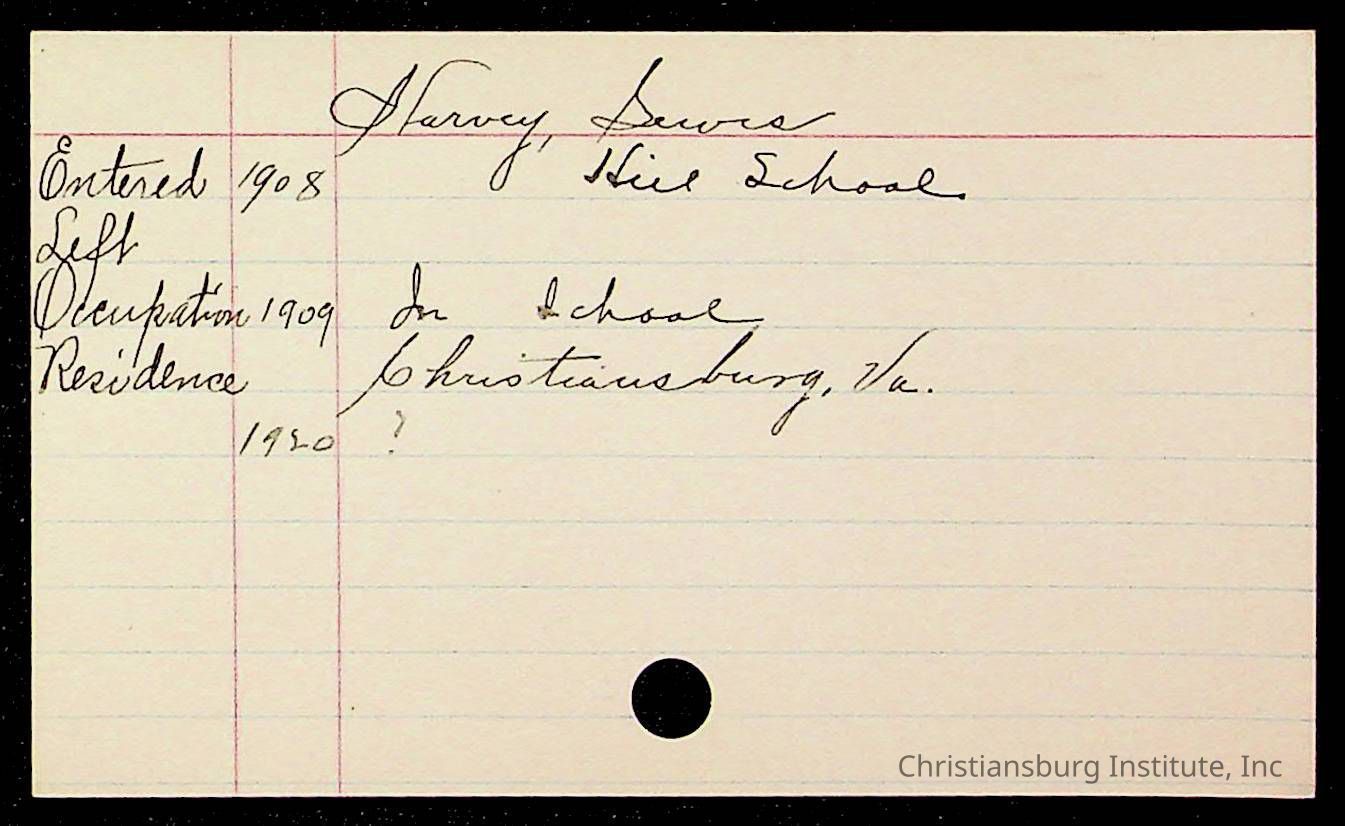 Harvey, Lewis
Entered 1908 Hill School.
Left
Occupation 1909 In School
Residence Christiansburg, Va.
1920 ?
Christiansburg Institute, Inc